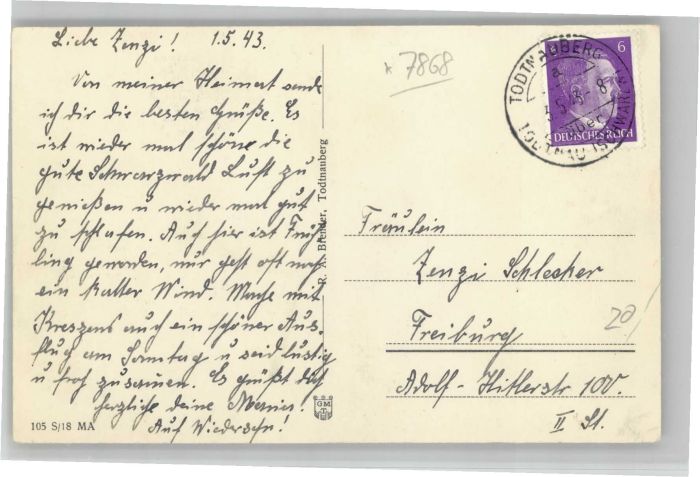 Liebe Zenzi! 1.5.43.
Von meiner Heimat sende
ich dir die besten Grüße. Es
ist wieder mal schöne die
gute Schwarzwald Luft zu
genießen u wieder mal gut
zu schlafen. Auch hier ist Früh-
ling geworden, nur geht oft noch
ein kalter Wind. Mache mit
Kreszens auch ein schöner Aus-
flug am Sonntag u seid lustig
u froh zusammen. Es grüßt dich
herzlich deine
Auf Wiedersehn!
105 S/18 MA
A. Brender, Todtnauberg
GM
* 7868
6
DEUTSCHES REICH
TODTNAUBERG
TODTNAU (SCHWARZW)
Fräulein
Zenzi Schlecker
Freiburg
Adolf-Hitlerstr 100.
II St.
20/